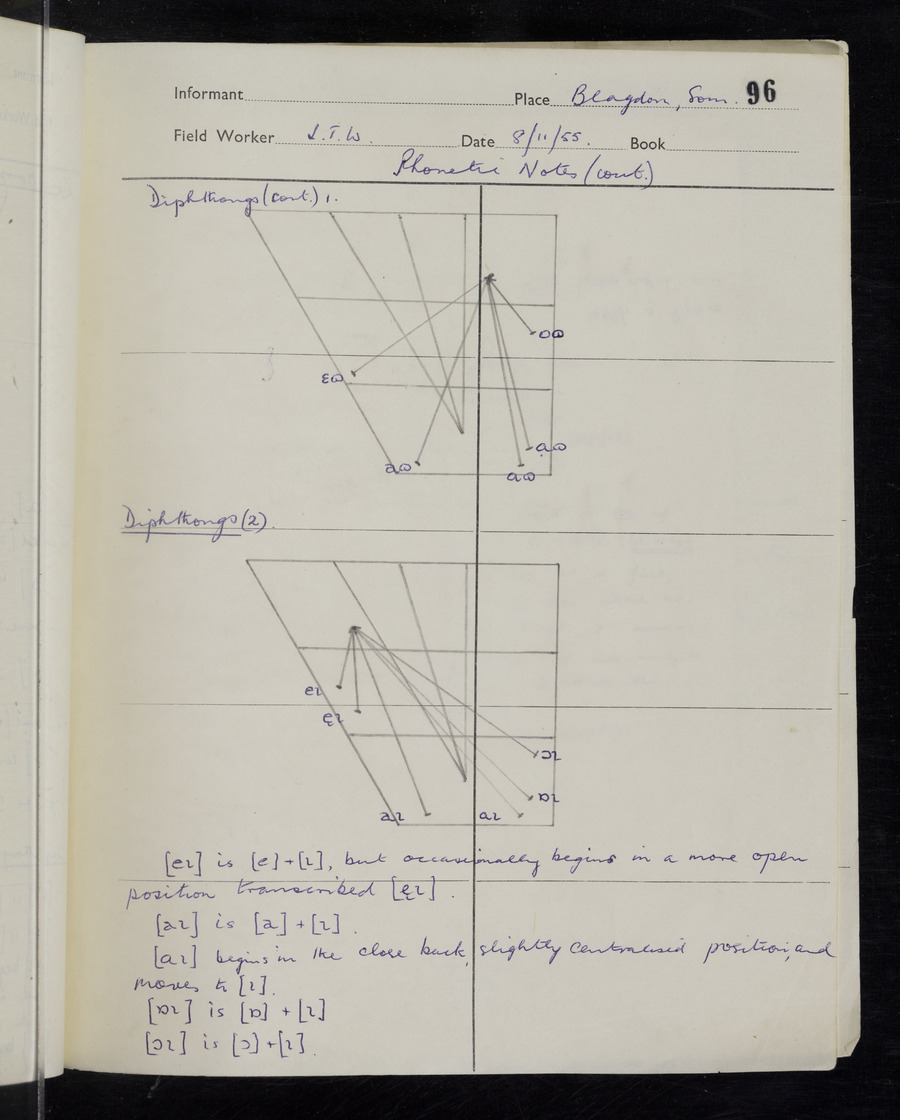 Informant Place Blagdon, Som. 96
Field Worker S.T.W. Date 8/11/55. Book
Phonetic Notes (cont.)
Diphthongs (cont.) 1.
ɒɷ
ɛɷ
ɑɷ
aɷ
ɑɷ
Diphthongs (2).
eɩ
ę
ɔɩ
ɒɩ
aɩ
ɑɩ
[eɩ] is [e] + [ɩ], but occasionally begins in a more open
position transcribed [ęɩ].
[aɩ] is [a] + [ɩ].
[ɑɩ] begins in the close back, slightly centralised position, and
moves to [ɩ].
[ɒɩ] is [ɒ] + [ɩ]
[ɔɩ] is [ɔ] + [ɩ].